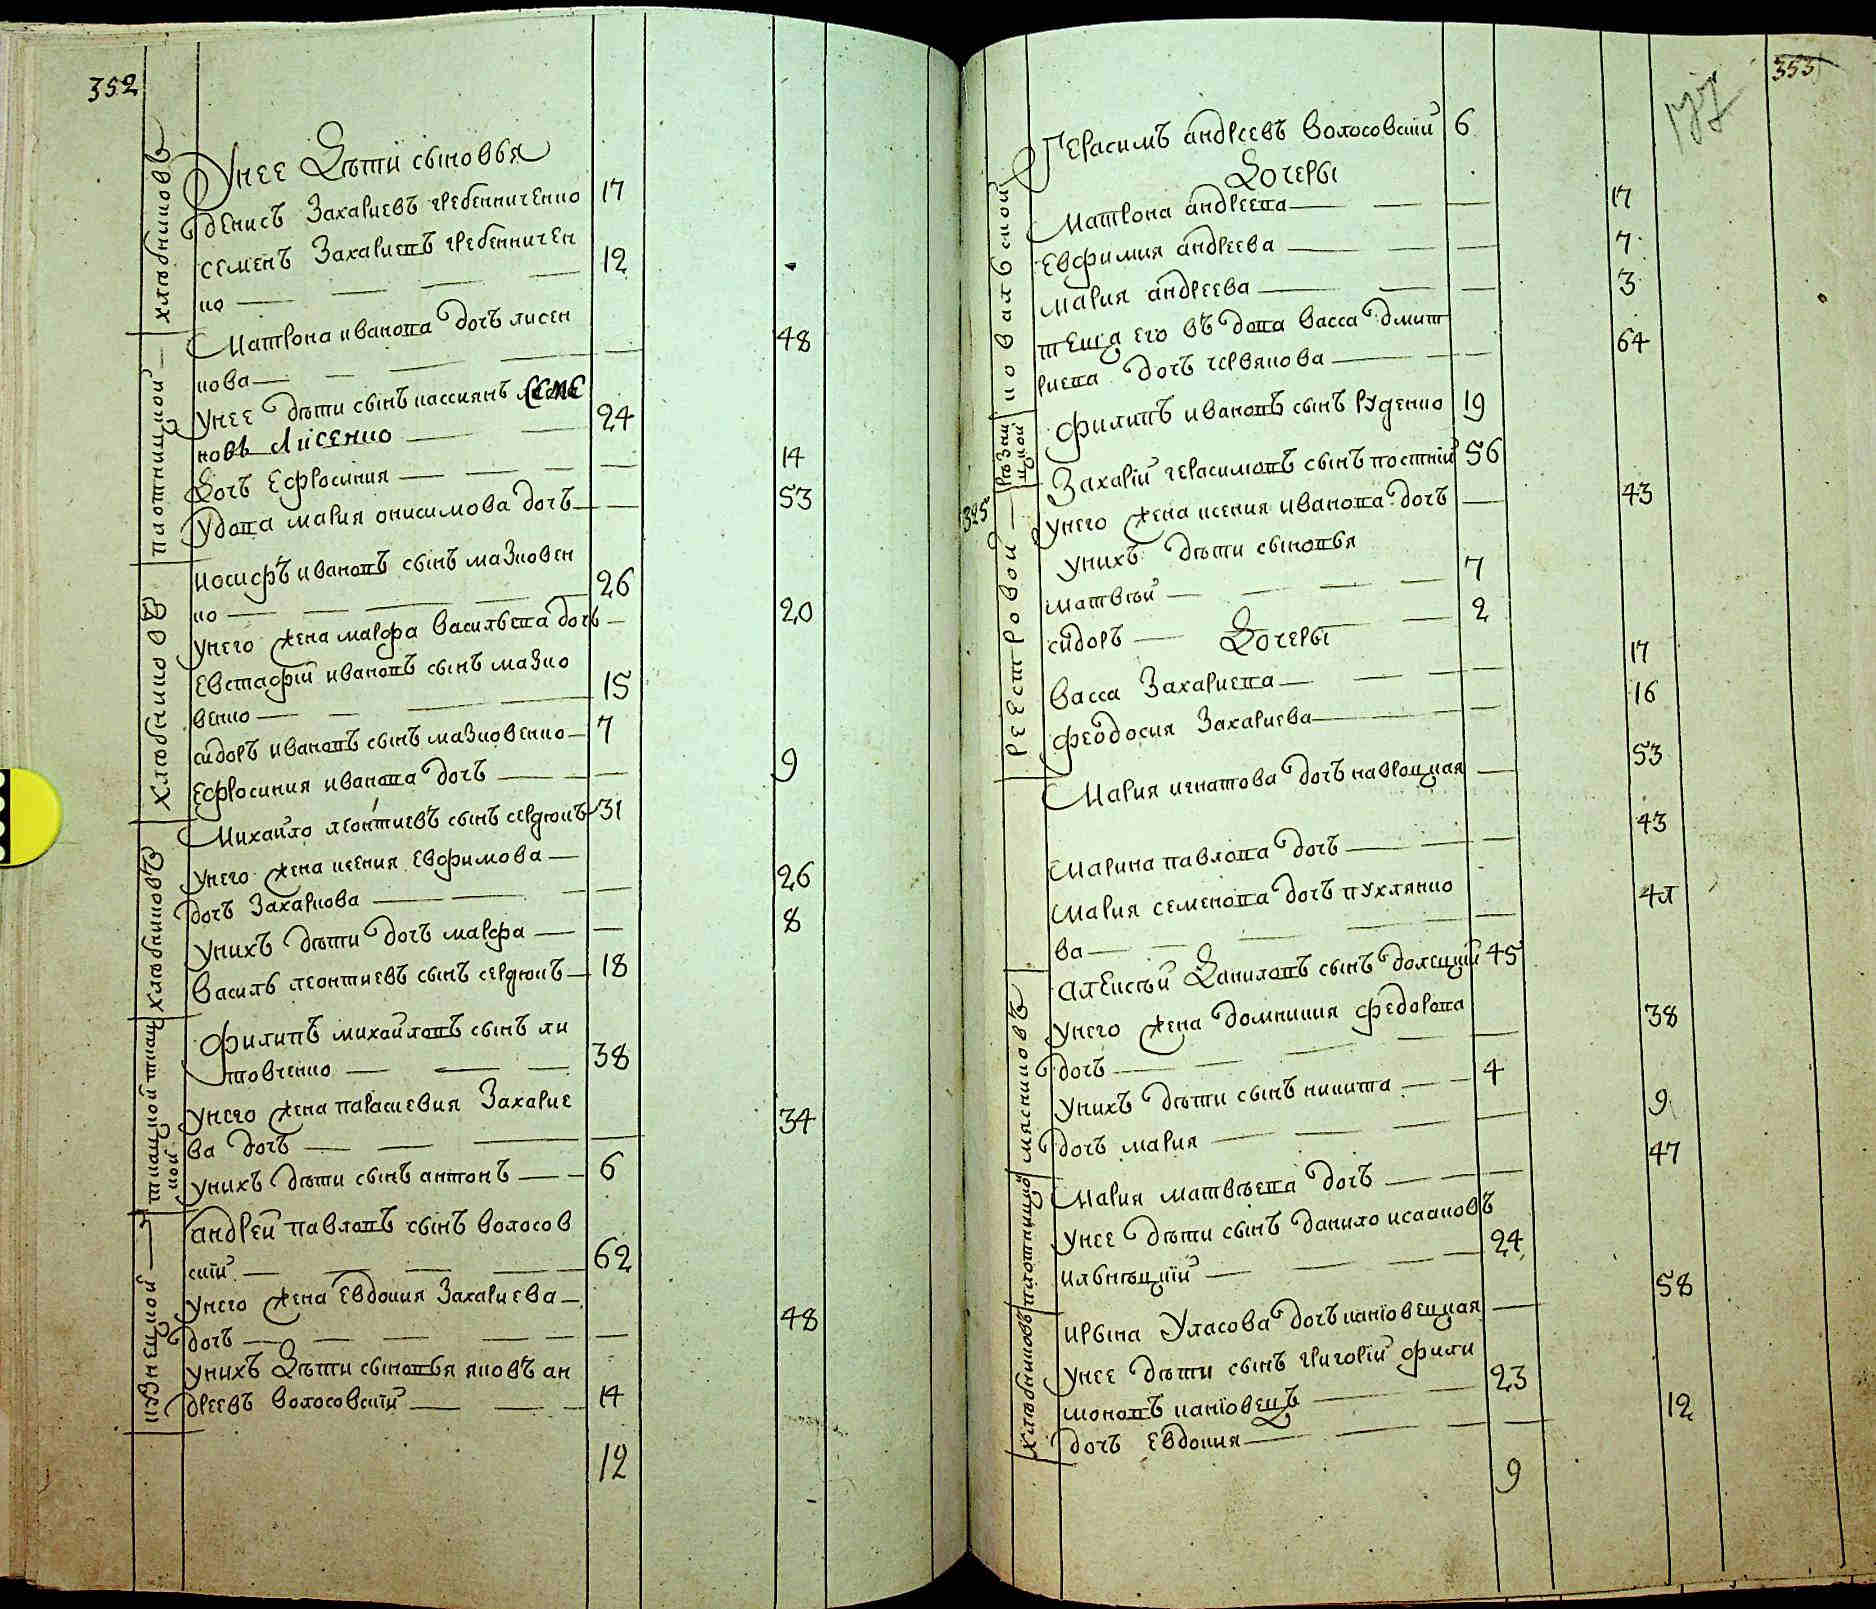 352
хлѣбниковъ
Унее Дѣти сыновья
денисъ Захариевъ гребенниченко 17
семенъ Захариевъ гребенничен
ко — 12
плотницкой
Матрона иванова дочъ лисен
кова — 48
Унее дѣти сынъ кассиянъ Семе
новъ Лисенко — 24
Дочъ Ефросиния — 14
Удова мария онисимова дочъ — 53
Хлѣбниковъ
иосифъ ивановъ сынъ мазковен
ко — 26
Унего жена марфа васильева дочъ — 20
Евстафий ивановъ сынъ мазко
венко — 15
сидоръ ивановъ сынъ мазковенко — 7
Ефросиния иванова дочъ — 9
хлѣбниковъ
Михайло леонтиевъ сынъ сердюкъ 31
Унего жена ксения Евфимова —
дочъ Захаркова — 26
Унихъ дѣти дочъ марфа — 8
василь леонтиевъ сынъ сердюкъ — 18
ткацкой
филипъ михайловъ сынъ ли
товченко — 38
Унего жена параскевия Захарие
ва дочъ — 34
Унихъ дѣти сынъ антонъ — 6
кузнецкой
андрей павловъ сынъ волосов
ский — 62
Унего жена Евдокия Захариева —
дочъ — 48
Унихъ Дѣти сыновья яковъ ан
дреевъ волосовский — 14
12
353
177
ковалской
Герасимъ андреевъ волосовский 6
Дочеры
Матрона андреева — 17
Евфимия андреева — 7
мария андреева — 3
теща его вдова васса дмит
риева дочъ червякова — 64
рѣзницкой
филипъ ивановъ сынъ Руденко 19
325
реестровой
Захарий герасимовъ сынъ постний 56
Унего жена ксения иванова дочъ — 43
Унихъ дѣти сыновья
матвѣй — 7
сидоръ — 2
Дочеры
васса Захариева — 17
феодосия Захариева — 16
Мария игнатова дочъ навроцкая — 53
Марина павлова дочъ — 43
Мария семенова дочъ пухлянко
ва —
мясниковъ
Алексѣй Даниловъ сынъ долецкий 45
Унего жена домникия федорова
дочъ — 38
Унихъ дѣти сынъ никита — 4
дочъ мария — 9
плотницкой
Мария матвѣева дочъ — 47
Унее дѣти сынъ данило исааковъ
илницкий — 24
хлѣбниковъ
ирына Уласова дочъ канювецкая — 58
Унее дѣти сынъ григорий фили
моновъ канювецъ — 23
дочъ Евдокия — 12
9